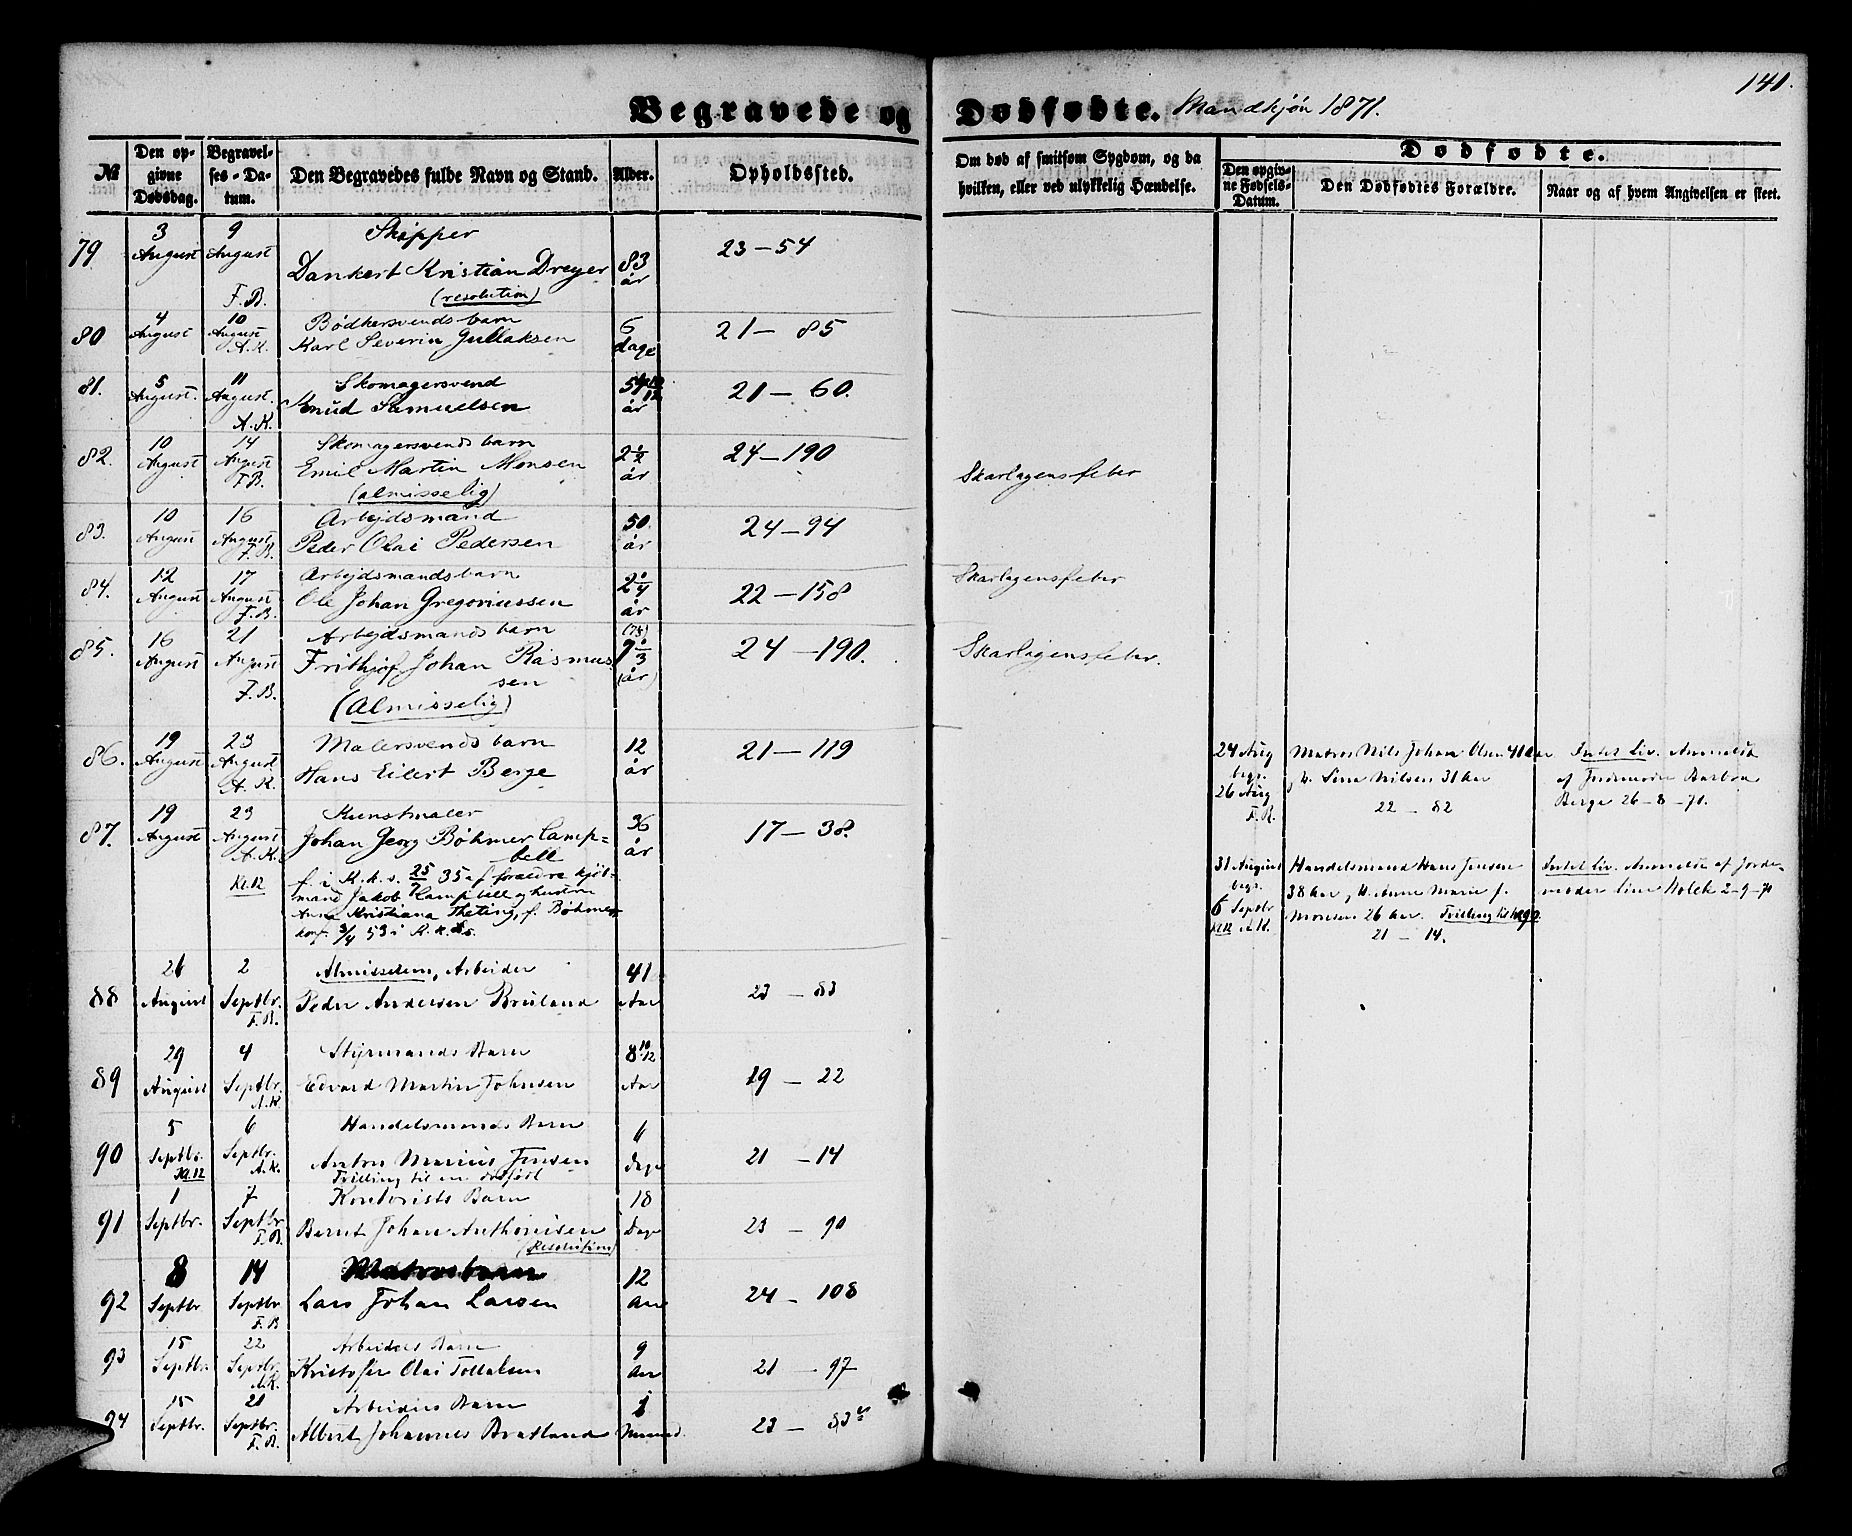 141.
Begravede og Dødfødte. Mandkjøn 1871.
№ | Den opgivne Dødsdag. | Begravelses-Datum. | Den Begravedes fulde Navn og Stand. | Alder. | Opholdssted. | Om død af smitsom Sygdom, og da hvilken, eller ved ulykkelig Hændelse. | Dødfødte. | Den opgivne Fødsels-Datum. | Den Dødfødtes Forældre. | Naar og af hvem Angivelsen er skeet.
79 | 3 August | 9 August F. B. | Skipper
Dankert Kristian Dreyer (resolution) | 83 år | 23 — 54
80 | 4 August | 10 August A. K. | Bødkersvends barn
Karl Severin Gullaksen | 6 dage | 21 — 85
81. | 5 August. | 11 August. A. K. | Skomagersvend
Knud Samuelsen | år | 21 — 60.
82. | 10 August | 14 August F. B. | Skomagersvends barn
Emil Martin Monsen (almisselig) | 2 1/2 år | 24 — 190 | Skarlagensfeber
83. | 10 August | 16 August F. B. | Arbejdsmand
Peder Olai Pedersen | 50. år | 24 — 94
84. | 12 August | 17 August F. B. | Arbejdsmands barn
Ole Johan Gregoriussen | 2 1/4 år | 22 — 158 | Skarlagensfeber
85. | 16 August | 21 August F. B. | Arbejdsmands barn
Frithjof Johan Rasmussen
(Almisselig) | år | 24 — 190. | Skarlagensfeber.
86. | 19 August | 23 August A. K. | Malersvends barn
Hans Eilert Berge | 12 år | 21 — 119
24 Aug begr. 26 Aug F. B. | Matros Nils Johan Olsen 41 Aar
H. Lina Nilsen 31 Aar
22 — 82 | Intet Liv. Anmeldt
af Jordmoder Barbra
Berge 26-8-71.
87. | 19 August | 23 August A. K. Kl. 12 | Kunstmaler
Johan Georg Bøhmer Campbell
f. i K. k. s. 25/7 35 af forældre kjøb-
mand Jakob Campbell og hustru
Anna Kristiana Theting, f. Bøhmer
konf. 3/4 53 i K. k. s. | 36 år | 17 — 38.
31 August begr. 6 Septbr Kl. 12 A. K. | Handelsmand Hans Jensen
38 Aar, H. Anne Marie f.
Monsen 26 Aar. Tvilling til No 90.
21 — 14. | Intet Liv. Anmeldt af Jorde-
moder Line Holck 2-9-71
88 | 26 August | 2 Septbr. F. B. | Almisselem, Arbeider
Peder Andersen Bruland | 41 Aar | 23 — 83
89 | 29 August | 4 Septbr. A. K. | Styrmands Barn
Edvard Martin Johnsen | 8 10/12 Aar | 19 — 22
90 | 5 Septbr. Kl. 12 | 6 Septbr. A. K. | Handelsmands Barn
Anton Marius Jensen
Tvilling til en dødfødt | 6 Dage | 21 — 14
91 | 1 Septbr. | 7 Septbr. F. B. | Kontorists Barn
Bernt Johan Anthonisen (Resolution) | 18 Dage | 23 — 90
92 | 8 Septbr | 14 Septbr F. B | Matros barn
Lars Johan Larsen | 12 Aar | 24 — 108
93 | 15 Septbr. | 22 Septbr. A. K. | Arbeiders Barn
Kristofer Olai Tollaksen | 9 Aar | 21 — 97
94 | 15 Septbr. | 21 Septbr. F. B. | Arbeiders Barn
Albert Johannes Bratland | 1 Maaned. | 23 — 83